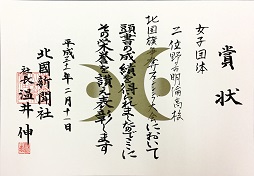 賞状
女子団体
二位 野々市明倫高校
北国旗 大会において
頭書の成績を得られましたのでここに
その栄誉を讃え表彰します
平成三十一年二月十一日
北國新聞社
社長 温井 伸